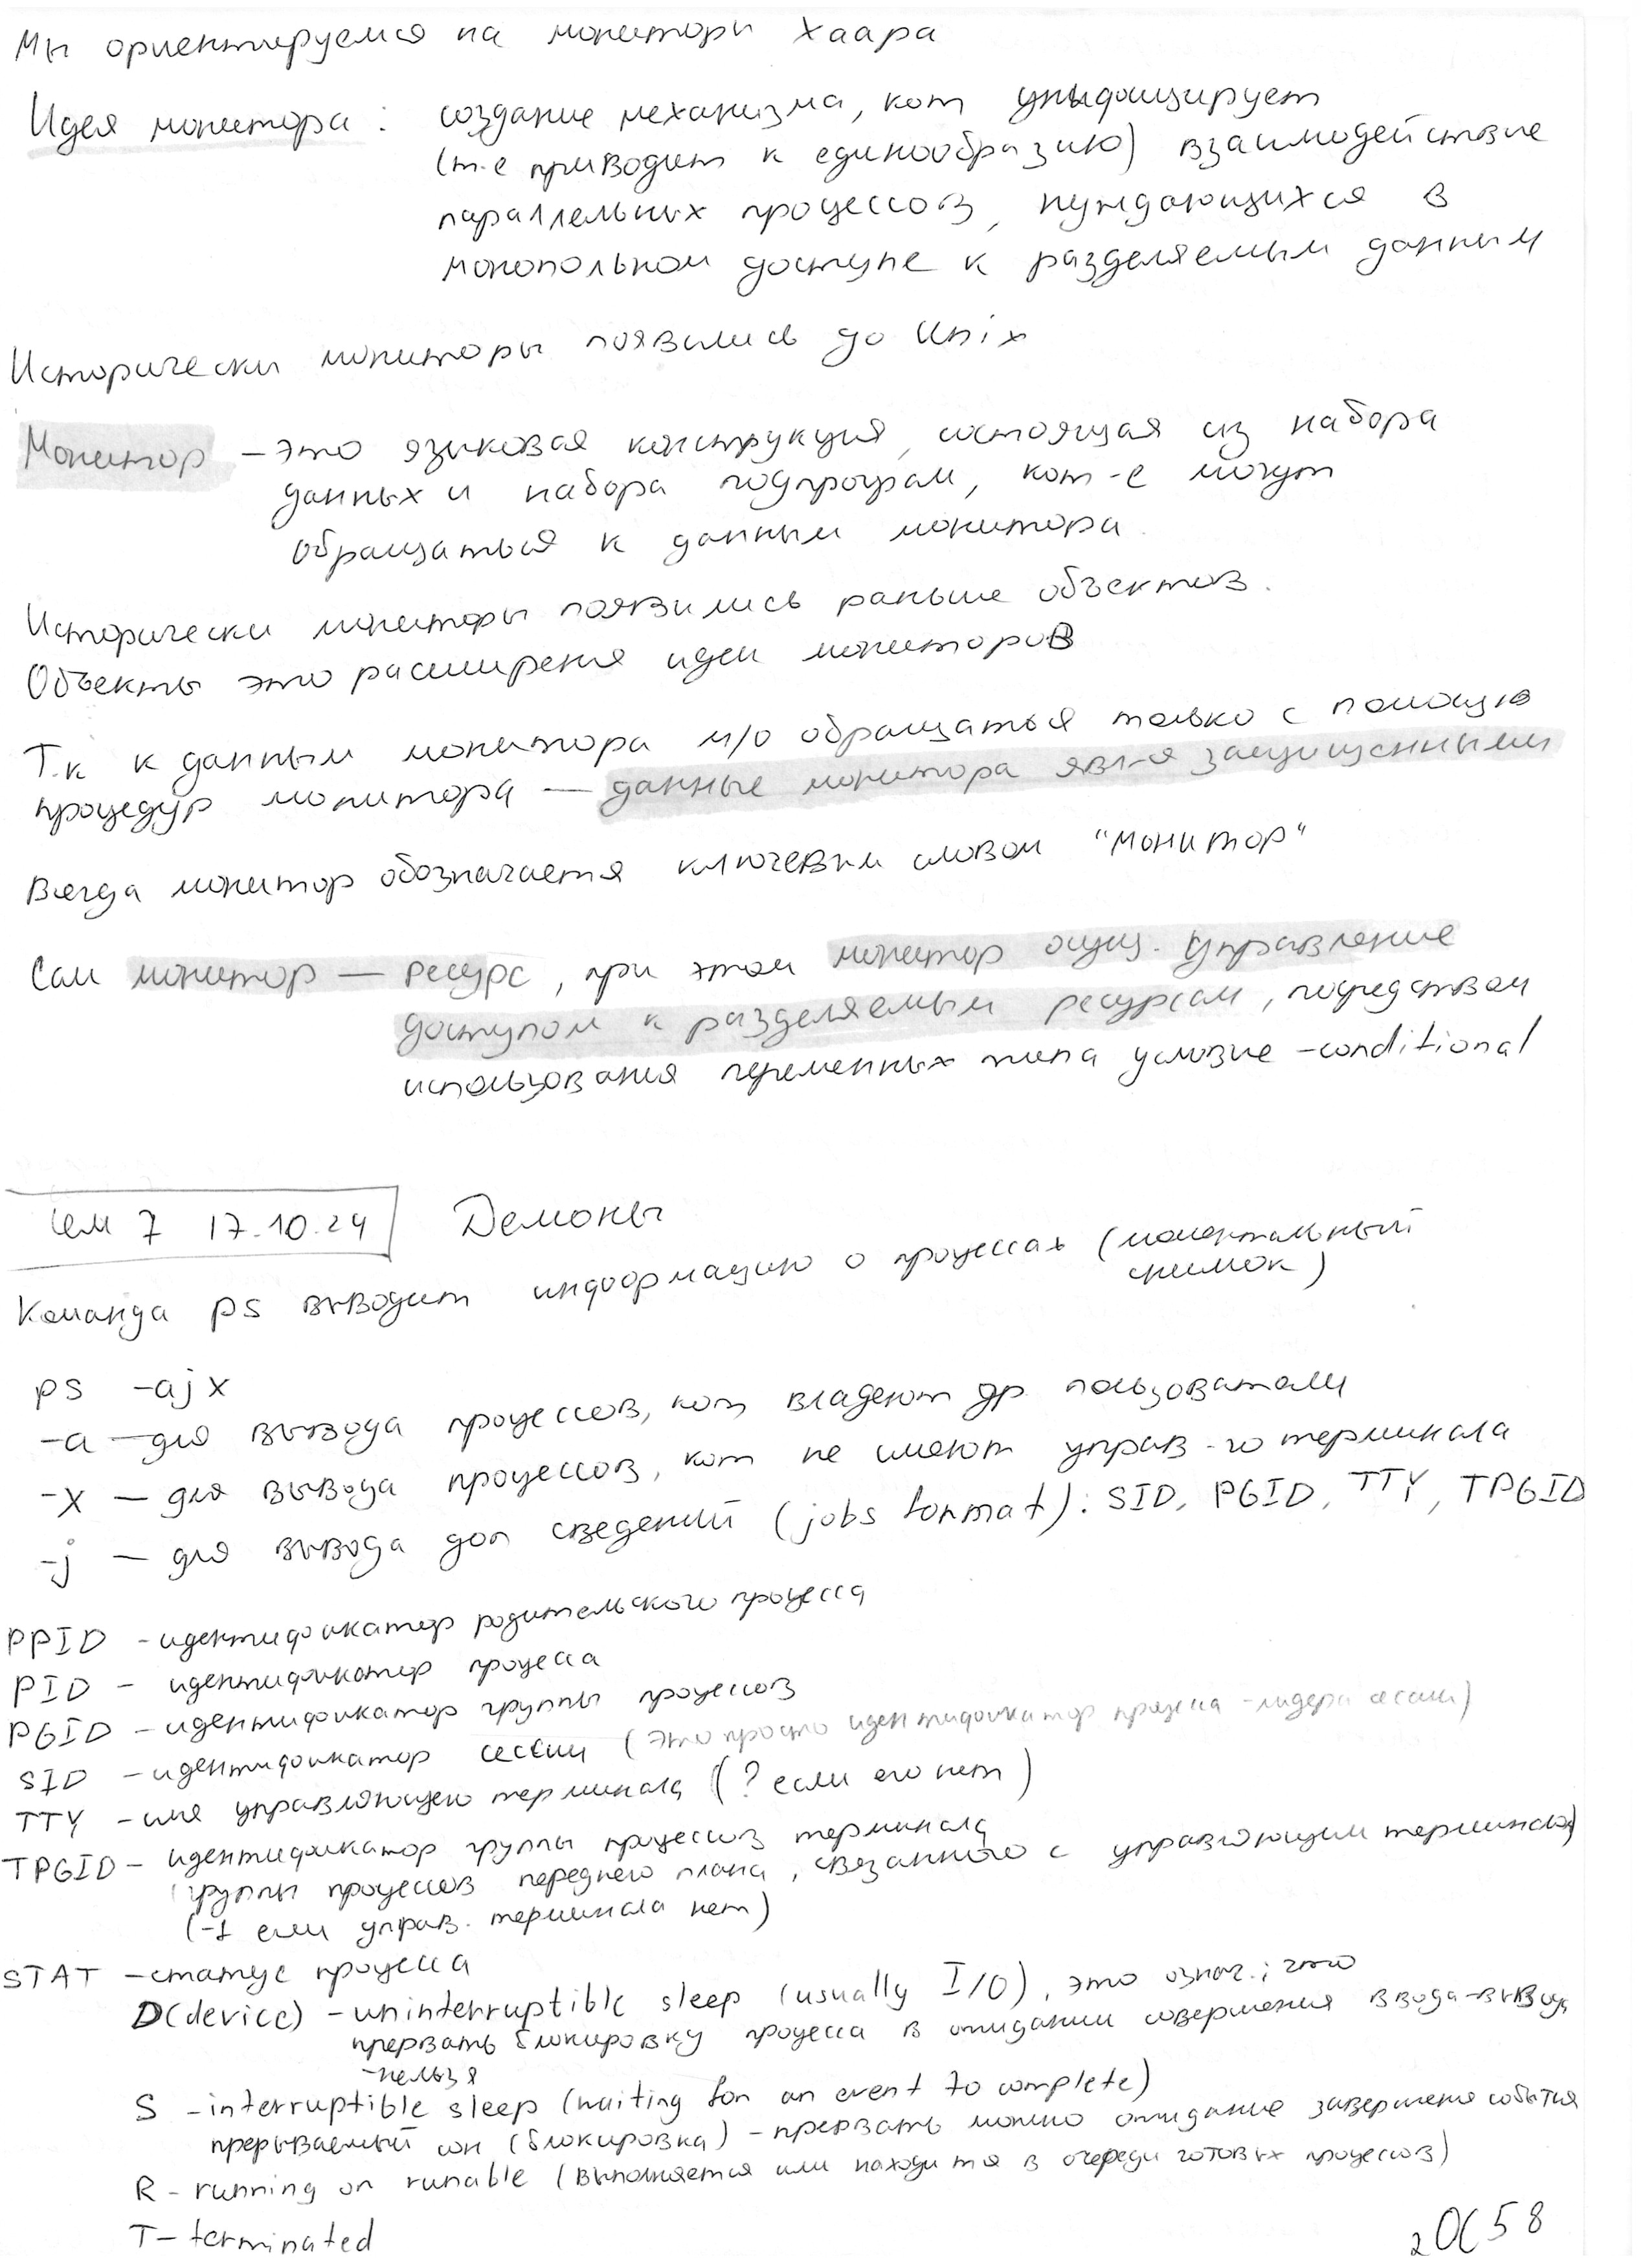 Мы ориентируемся на мониторы Хаара
Идея монитора: создание механизма, кот унифицирует
(т.е приводит к единообразию) взаимодействие
параллельных процессов, нуждающихся в
монопольном доступе к разделяемым данным
Исторически мониторы появились до Unix
Монитор – это языковая конструкция, состоящая из набора
данных и набора подпрограм, кот-е могут
обращаться к данным монитора.
Исторически мониторы появились раньше объектов.
Объекты это расширения идеи мониторов
Т.к к данным монитора м/о обращаться только с помощью
процедур монитора — данные монитора явл-я защищенными
Всегда монитор обозначается ключевым словом "монитор"
Сам монитор — ресурс, при этом монитор осущ. управление
доступом к разделяемым ресурсам, посредством
использования переменных типа условие -conditional
Сем 7 17.10.24 Демоны
Команда ps выводит информацию о процессах (моментальный
снимок)
ps -ajx
-a — для вывода процессов, кот владеют др. пользователи
-x — для вывода процессов, кот не имеют управ-го терминала
-j — для вывода доп сведений (jobs format): SID, PGID, TTY, TPGID
PPID - идентификатор родительского процесса
PID - идентификатор процесса
PGID - идентификатор группы процессов
SID - идентификатор сессии (это просто идентификатор процесса -лидера сессии)
TTY - имя управляющего терминала (? если его нет)
TPGID - идентификатор группы процессов терминала
(группы процессов переднего плана, связанного с управляющим терминалом)
(-1 если управ. терминала нет)
STAT - статус процесса
D(device) - uninterruptible sleep (usually I/O), это означ., что
прервать блокировку процесса в ожидании совершения ввода-вывода
-нельзя
S - interruptible sleep (waiting for an event to complete)
прерываемый сон (блокировка) - прервать можно ожидание завершения события
R - running or runable (выполняется или находится в очереди готовых процессов)
T- terminated
58